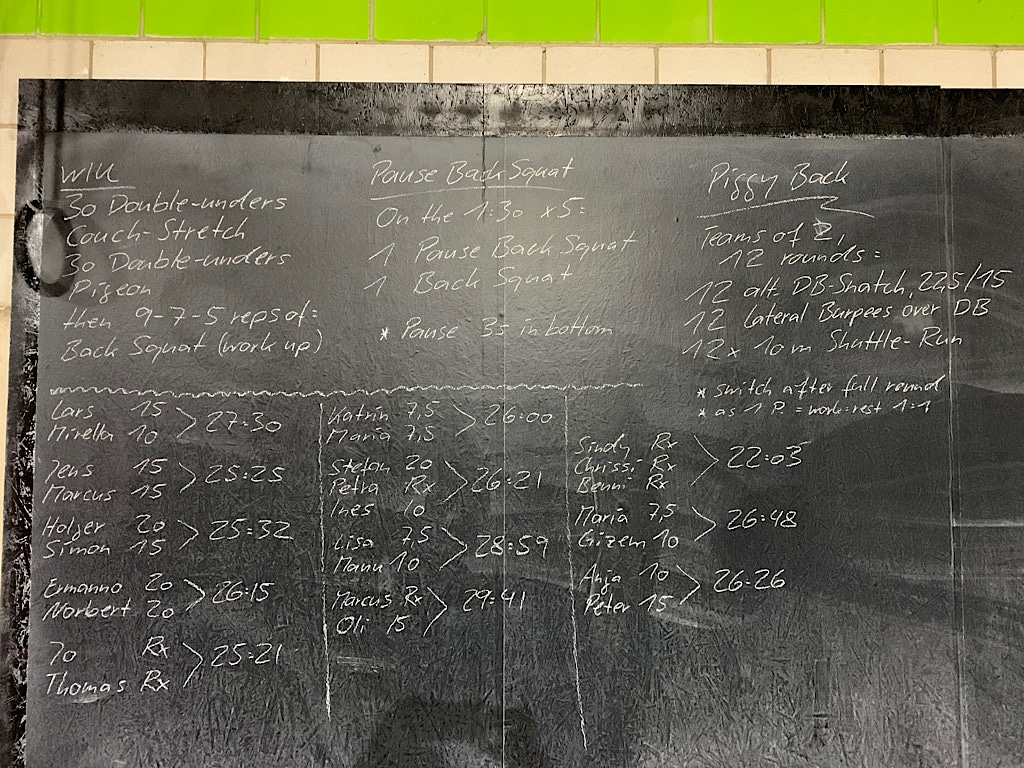 WU
30 Double-unders
Couch-Stretch
30 Double-unders
Pigeon
then 9-7-5 reps of:
Back Squat (work up)
Pause Back Squat
On the 1:30 x5:
1 Pause Back Squat
1 Back Squat
* Pause 3s in bottom
Piggy Back
Teams of 2,
12 rounds:
12 alt. DB-Snatch, 22,5/15
12 Lateral Burpees over DB
12x 10m Shuttle-Run
* switch after full round
* as 1 P. = work:rest 1:1
Lars 15
Mirella 10 > 27:30
Jens 15
Marcus 15 > 25:25
Holger 20
Simon 15 > 25:32
Ermanno 20
Norbert 20 > 26:15
Jo Rx
Thomas Rx > 25:21
Katrin 7,5
Maria 7,5 > 26:00
Stefan 20
Petra Rx > 26:21
Ines 10
Lisa 7,5
Manu 10 > 28:59
Marcus Rx
Oli 15 > 29:41
Sindy Rx
Chrissi Rx > 22:03
Benni Rx
Maria 7,5
Gizem 10 > 26:48
Anja 10
Peter 15 > 26:26